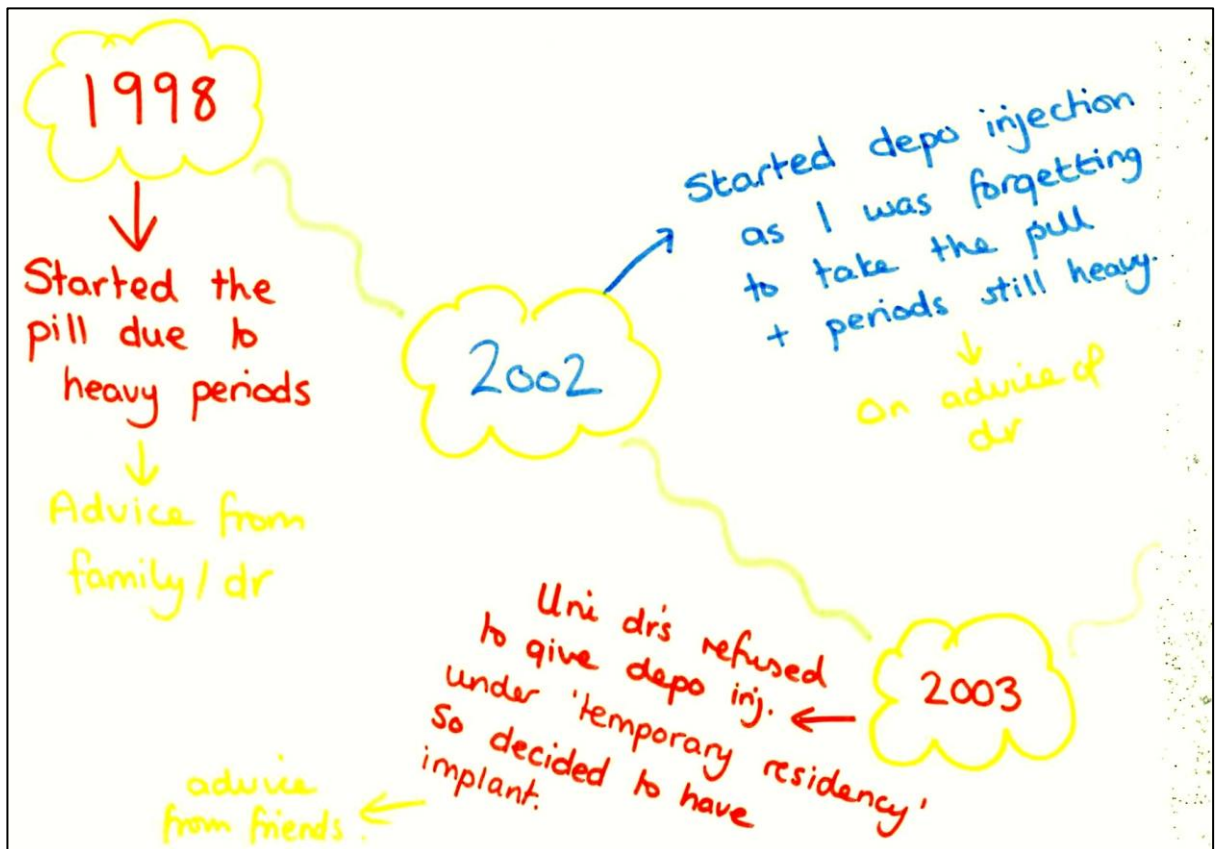 1998
Started the
pill due to
heavy periods
Advice from
family / dr
2002
Started depo injection
as I was forgetting
to take the pill
+ periods still heavy.
On advice of
dr
2003
Uni dr's refused
to give depo inj.
under 'temporary residency'
So decided to have
implant.
advice
from friends.